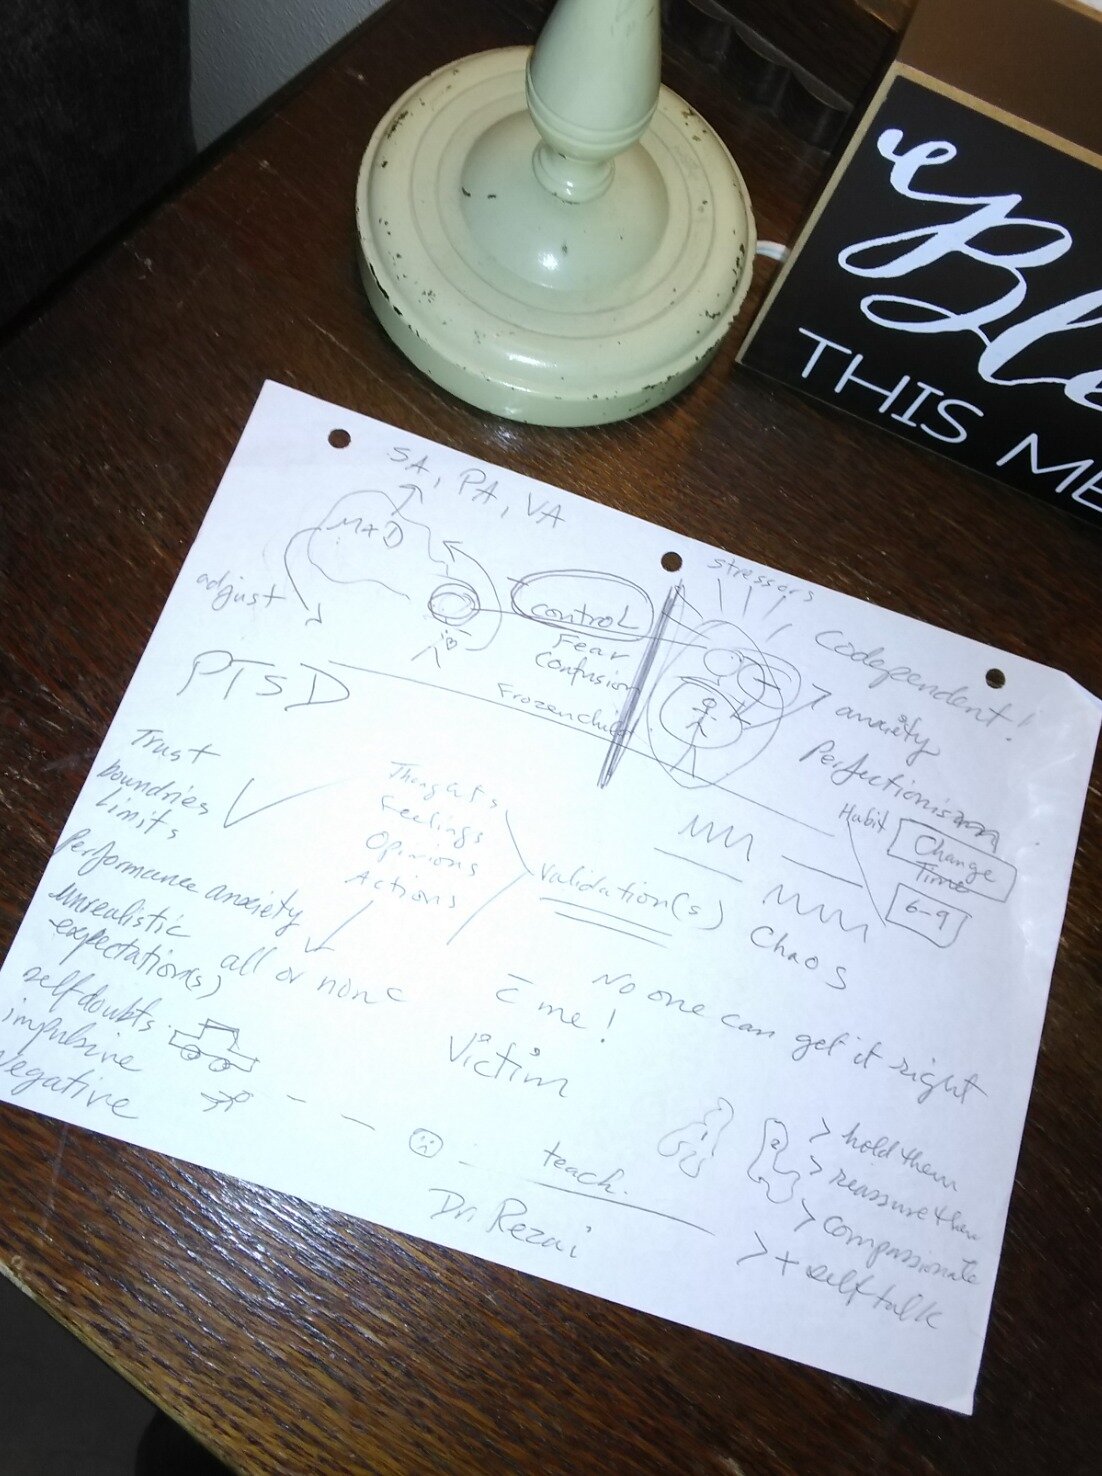 Ble
THIS ME
SA, PA, VA
M+D
adjust
PTSD
control
Fear
Confusion
Frozen child
stressors
Codependent!
anxiety
Perfectionism
Habit
Change
Time
6-9
Trust
boundries
Limits
Performance anxiety
unrealistic
expectation(s)
all or none
self doubts
impulsive
Negative
Thoughts
Feelings
Opinions
Actions
Validation(s)
Chaos
No one can get it right
c̄ me!
Victim
teach.
Dr. Rezai
> hold them
> reassure them
> compassionate
> + self talk